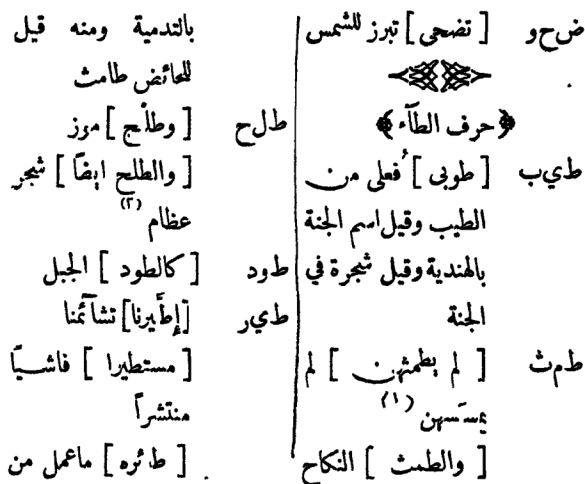 ض ح و [ تضحى ] تبرز للشمس
﴿ حرف الطآء ﴾
ط ي ب [ طوبى ] فُعلى من
الطيب وقيل اسم الجنة
بالهندية وقيل شجرة في
الجنة
ط م ث [ لم يطمثهن ] لم
يمسَسهن (١)
[ والطمث ] النكاح
بالتدمية ومنه قيل
للحائض طامث
ط ل ح [ وطلْح ] موز
[ والطلح ايضاً ] شجر
عظام (٢)
ط و د [ كالطود ] الجبل
ط ي ر [إطَّيرنا] تشآئمنا
[ مستطيرا ] فاشيًّا
منتشراً
[ طائره ] ماعمل من